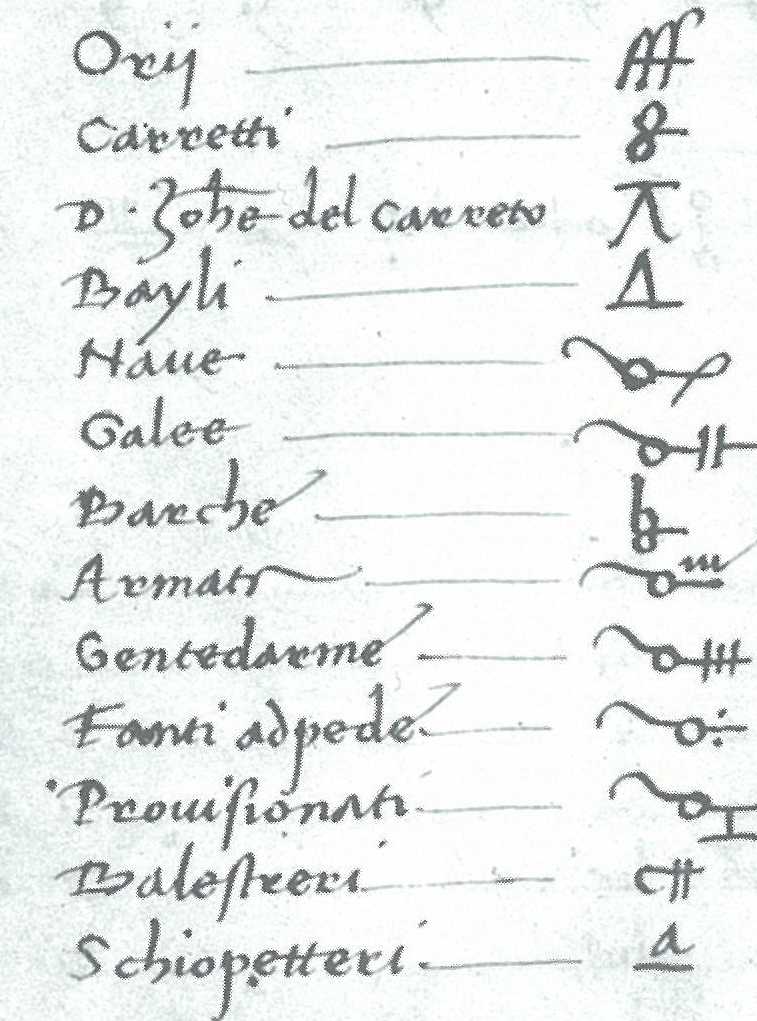 Orij
Carretti
D. Zohe del Carreto
Bayli
Naue
Galee
Barche
Armati
Gentedarme
Fanti adpede
Prouisionati
Balestreri
Schiopetteri a